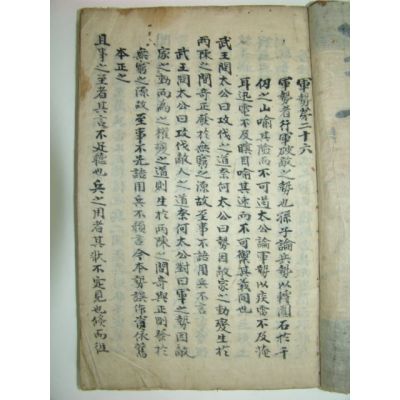 軍勢第二十六
軍勢者行軍破敵之勢也孫子論兵勢以轉圓石於千
仞之山喻其險而不可遏太公論軍勢以疾雷不及掩
耳迅電不及瞑目喻其速而不可禦其義同也
武王問太公曰攻伐之道奈何太公曰勢因敵家之動變生於
兩陳之間奇正發於無窮之源故至事不語用兵不言
武王問太公曰攻伐敵人之道奈何太公對曰軍之勢因敵
家之動而為之機變之道則生於兩陳之間奇與正則發於
無窮之源故至事不先語用兵不預言今本勢誤作資依舊
本正之
且事之至者其言不足聽也兵之用者其狀不定見也倏而往